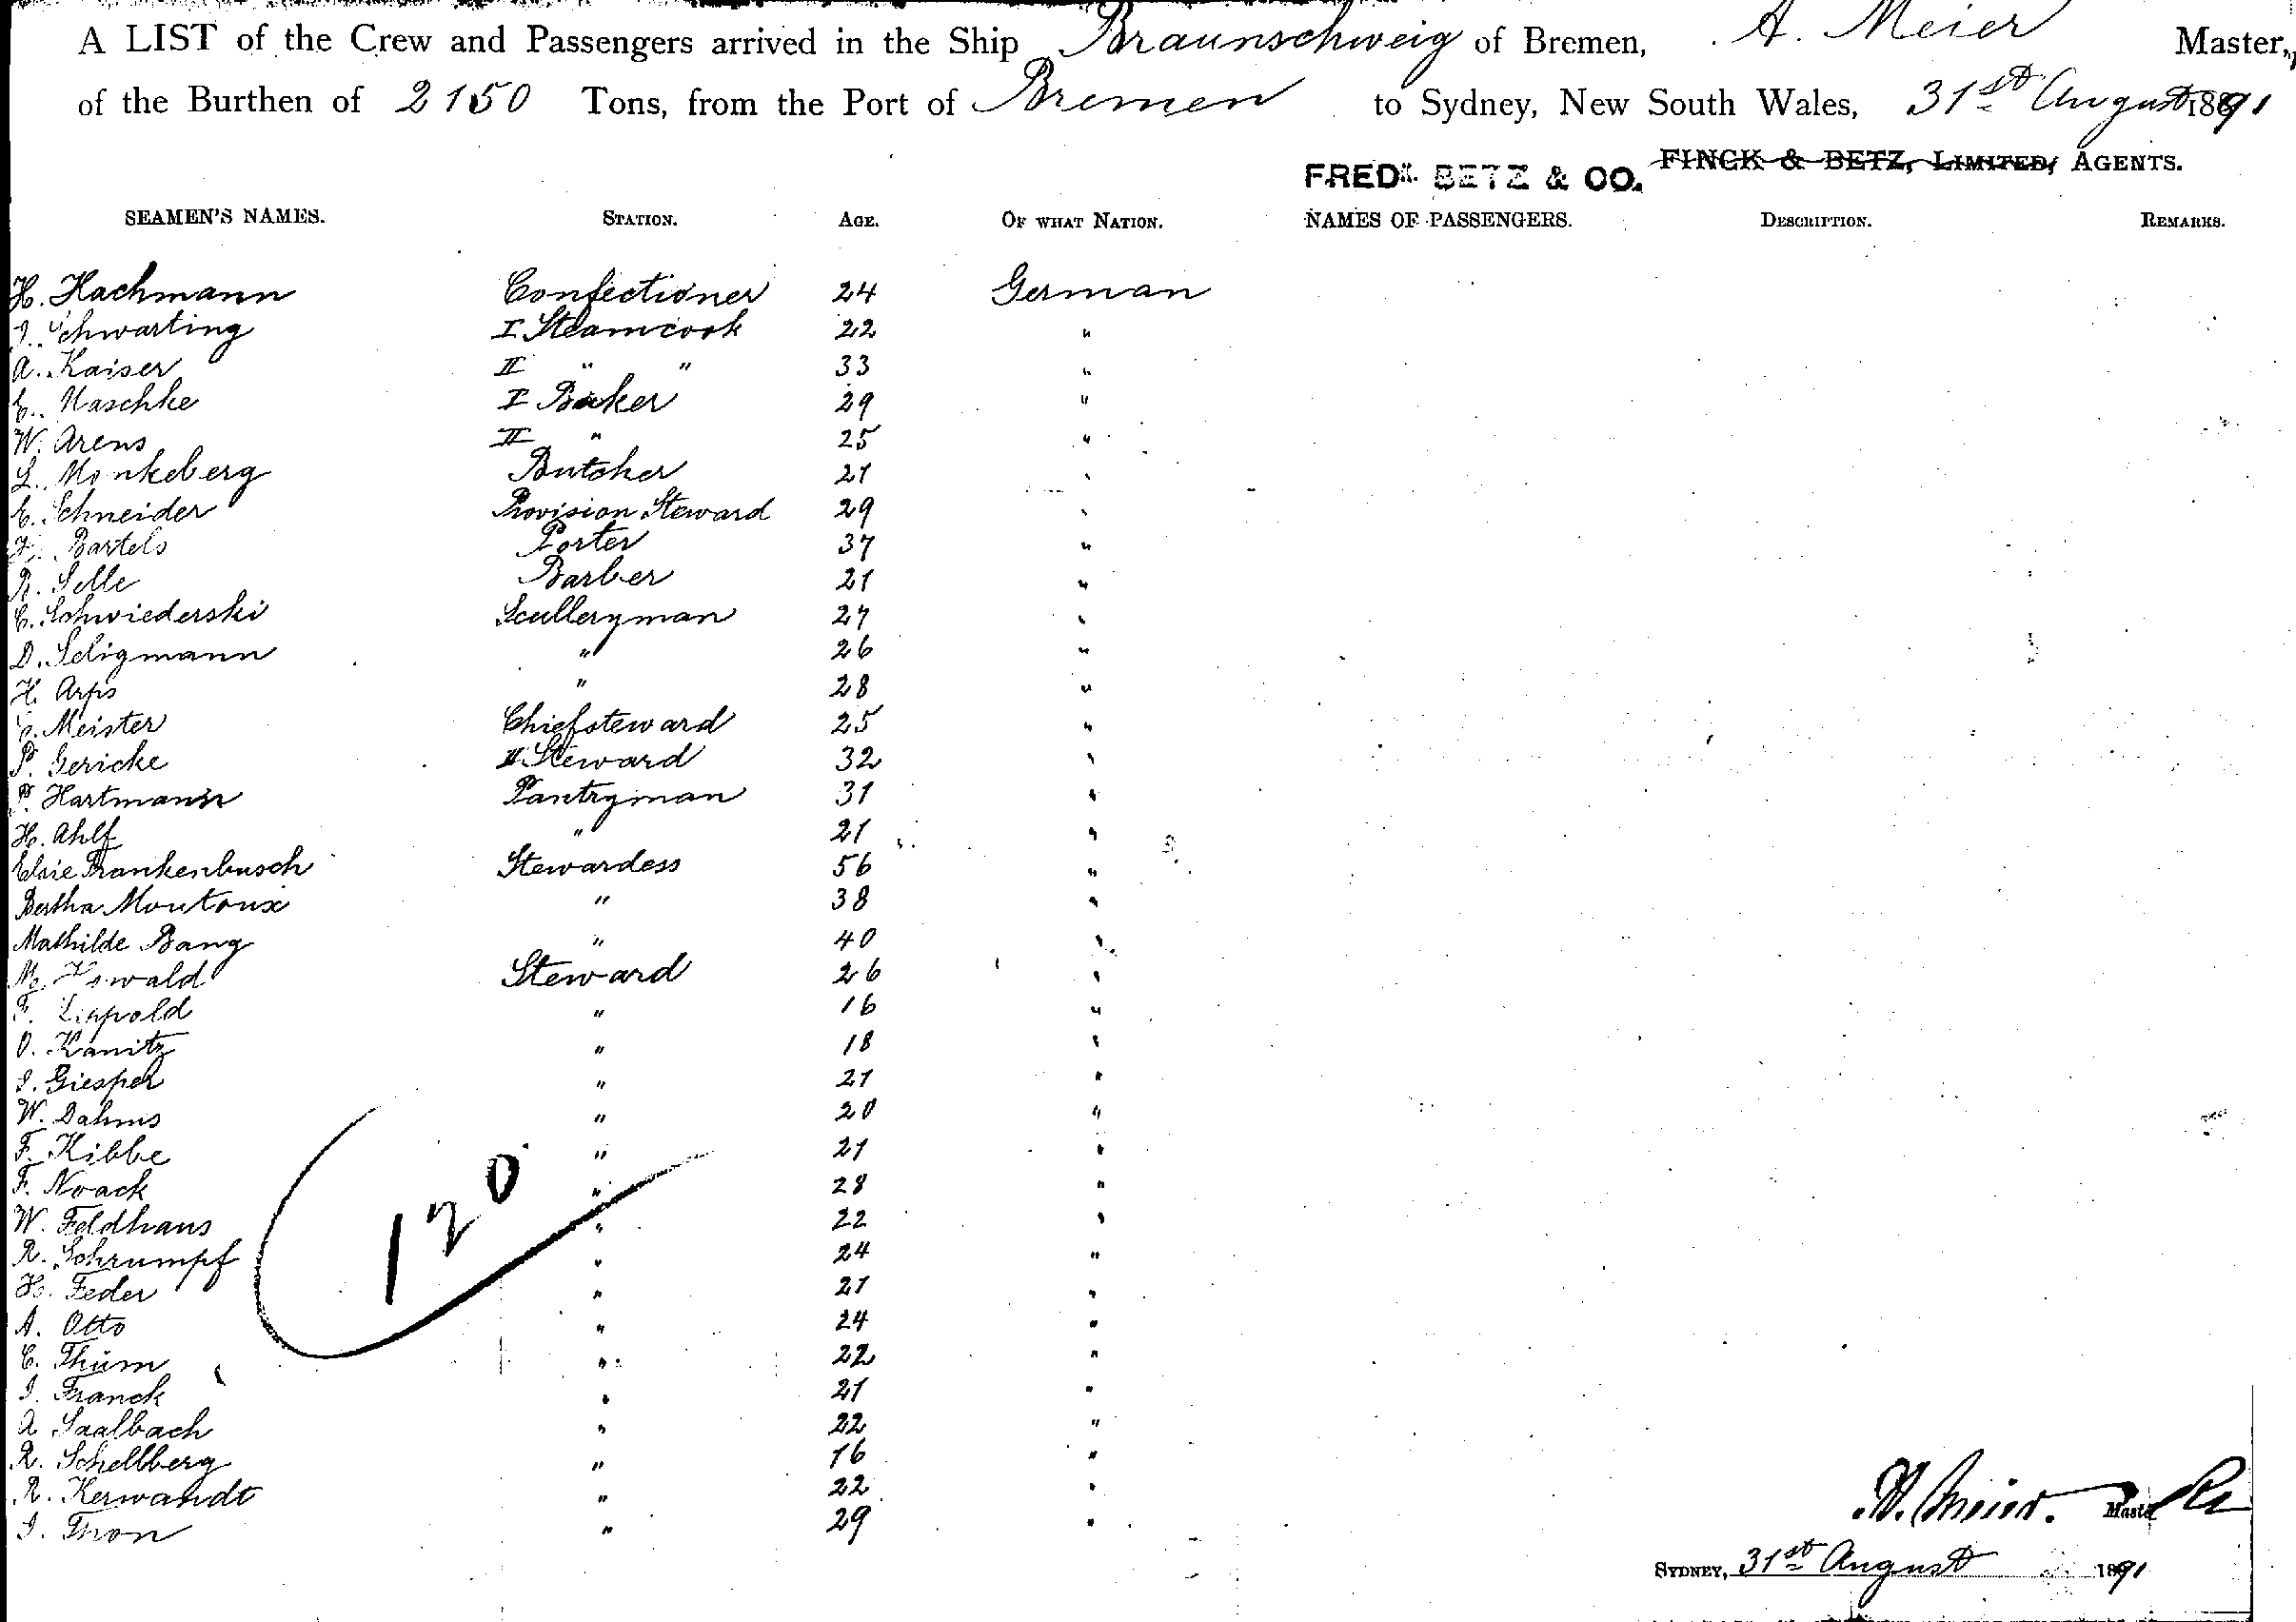 A LIST of the Crew and Passengers arrived in the Ship Braunschweig of Bremen, A. Meier Master,
of the Burthen of 2150 Tons, from the Port of Bremen to Sydney, New South Wales, 31st August 1891
FREDK. BETZ & CO. FINCK & BETZ, LIMITED, AGENTS.
SEAMEN'S NAMES. STATION. AGE. OF WHAT NATION. NAMES OF PASSENGERS. DESCRIPTION. REMARKS.
H. Hachmann Confectioner 24 German
J. Schwarting I Steamcook 22 "
A. Kaiser II " " 33 "
E. Maschke I Baker 29 "
W. Arens II " 25 "
L. Monkeberg Butcher 21 "
E. Schneider Provision Steward 29 "
Bartels Porter 37 "
R. Selle Barber 21 "
C. Schwiederski Sculleryman 27 "
D. Seligmann " 26 "
H. Arps " 28 "
Meister Chiefsteward 25 "
P. Gericke II Steward 32 "
P. Hartmann Pantryman 31 "
H. Ahlf " 21 "
Elsie Frankenbusch Stewardess 56 "
Bertha Moutoux " 38 "
Mathilde Bang " 40 "
M. Steward 26 "
F. Lippold " 16 "
O. Kanitz " 18 "
J. Giesper " 21 "
W. Dahms " 20 "
F. Kibbe " 21 "
F. Noack " 28 "
W. Feldhaus " 22 "
R. Schrumpf " 24 "
H. Feder " 21 "
A. Otto " 24 "
C. Thüm " 22 "
J. Franck " 21 "
A Saalbach " 22 "
R. Schellberg " 16 "
R. Kerwandt " 22 "
J. Thon " 29 "
120
A. Meier. Master
SYDNEY, 31st August 1891